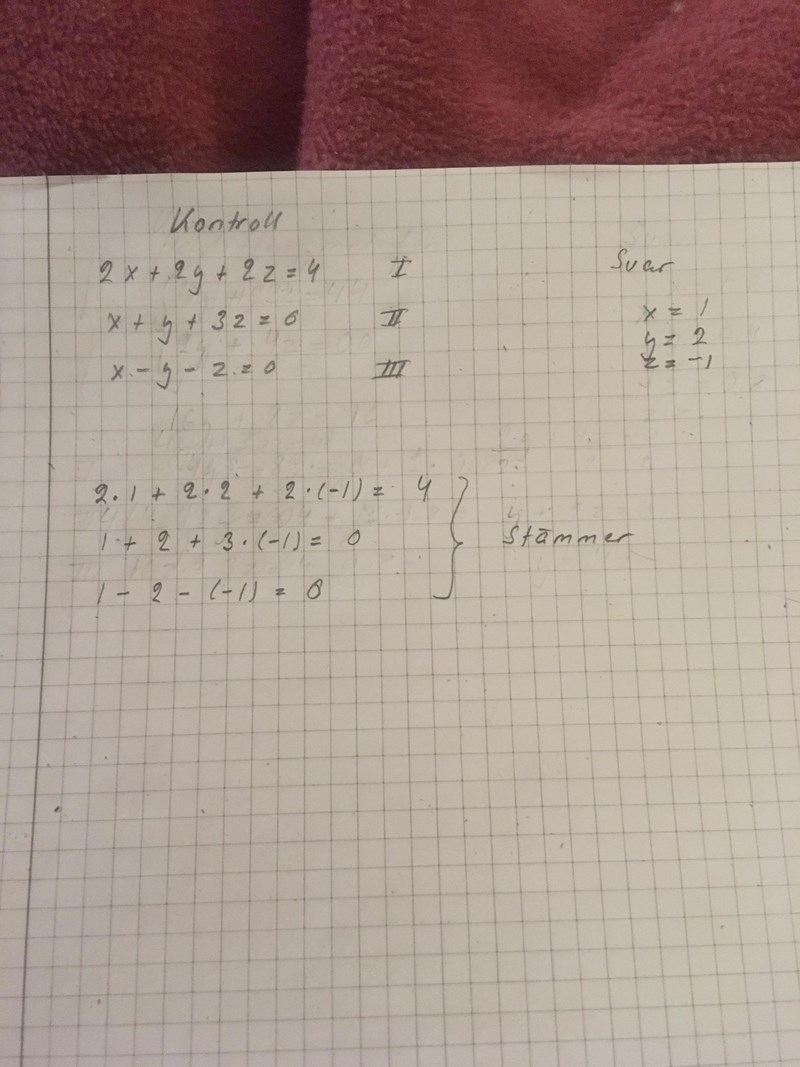 Kontroll
2x + 2y + 2z = 4 I
x + y + 3z = 0 II
x - y - z = 0 III
Svar
x = 1
y = 2
z = -1
2·1 + 2·2 + 2·(-1) = 4
1 + 2 + 3·(-1) = 0
1 - 2 - (-1) = 0
Stämmer